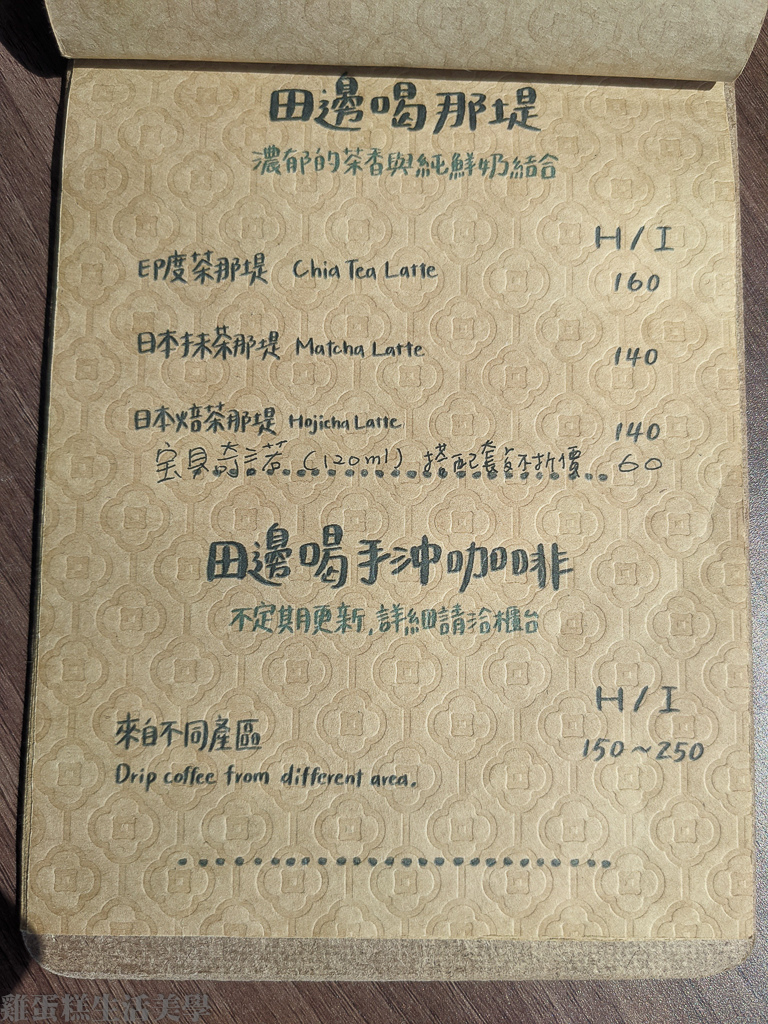 田邊喝那堤
濃郁的茶香與純鮮奶結合
H/I
印度茶那堤 Chia Tea Latte 160
日本抹茶那堤 Matcha Latte 140
日本焙茶那堤 Hojicha Latte 140
宝貝奇諾 (120ml) 搭配套餐不折價 60
田邊喝手沖咖啡
不定期更新,詳細請洽櫃台
H/I
來自不同產區 150~250
Drip coffee from different area.
雞蛋糕生活美學